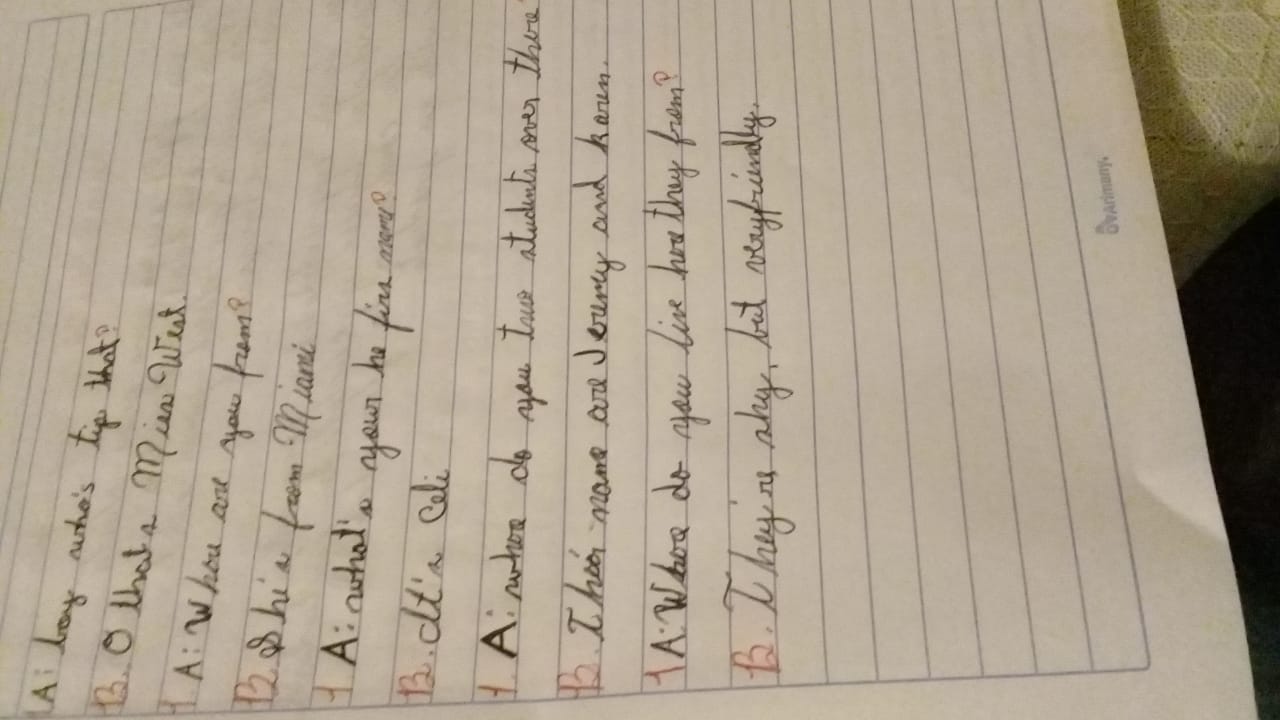 A: hey who's tip that?
B. O that's Miss West.
1. A: Where are you from?
B. She's from Miami
1. A: what's your he firs name?
B. It's Celi
1. A: where do you two students over there?
B. Their name are Jeremy and karen.
1 A: Where do you live here they from?
B. They're shy, but veryfriendly.
Arimany.